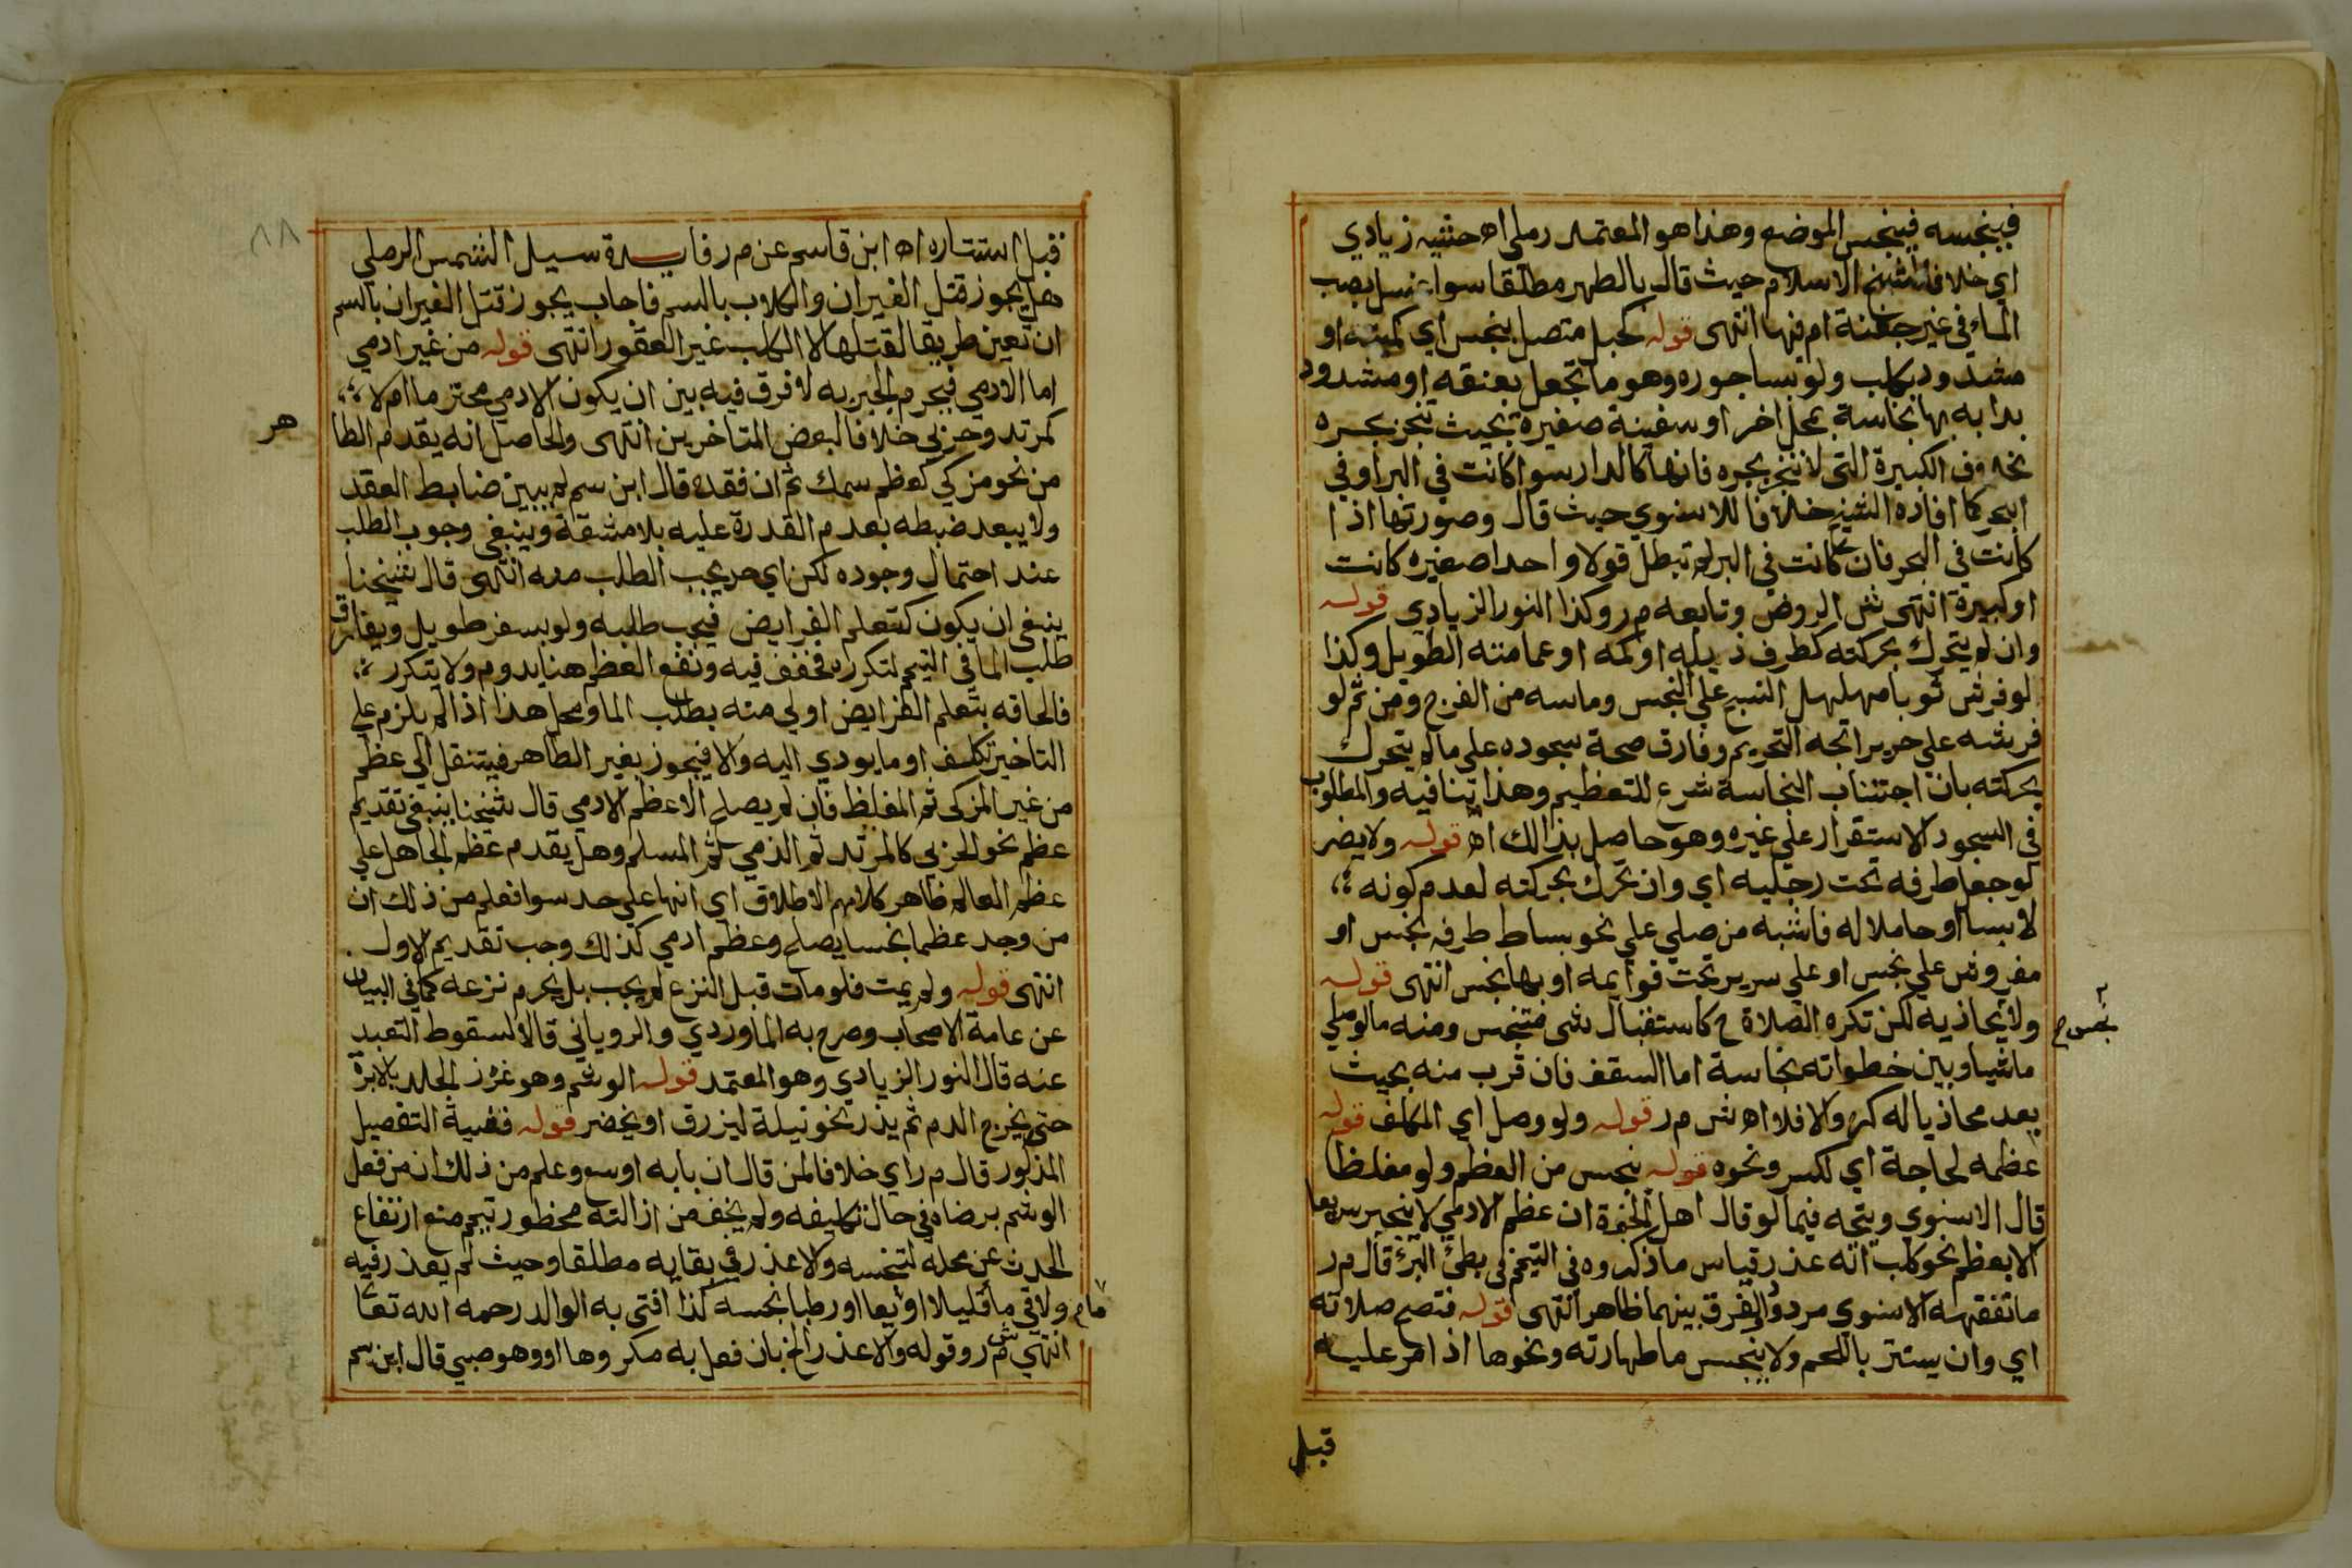 فينجسه فينجس الموضع وهذا هو المعتمد رملي اه حشيه زيادي
اي خلافا لشيخ الاسلام حيث قال بالطهر مطلقا سوا غسل بصب
الماء في غير جفنة ام فيها انتهى قوله كحبل متصل بنجس اي كميته او
مشدود بكلب ولو بساجوره وهو ما يجعل بعنقه او مشدود
بدابه بها نجاسة بمحل اخر او سفينة صغيرة بحيث تنجر بجره
بخلاف الكبيرة التي لا تنجر بجره فانها كالدار سوا كانت في البر او في
البحر كما افاده الشيخ خلافا للاسنوي حيث قال وصورتها اذا
كانت في البحر فان كانت في البر لم تبطل قولا واحدا صغيره كانت
او كبيرة انتهى ش الروض وتابعه م ر وكذا النور الزيادي قوله
وان لم يتحرك بحركته كطرف ذيله او كمه او عمامته الطويل وكذا
لو فرش ثوبا مهلهل النسج على النجس وماسه من الفرج ومن ثم لو
فرشه علي حرير اتجه التحريم وفارق صحة سجوده على ما لم يتحرك
بحركته بان اجتناب النجاسة شرع للتعظيم وهذا ينافيه والمطلوب
في السجود الاستقرار علي غيره وهو حاصل بذالك اه قوله ولا يضر
لو جعل طرفه تحت رجليه اي وان تحرك بحركته لعدم كونه
لابسا او حاملا له فاشبه من صلي علي نحو بساط طرفه نجس او
مفروش علي نجس او علي سرير تحت قوايمه او بها نجس انتهى قوله
ولا يحاذيه لكن تكره الصلاة ح كاستقبال شى متنجس ومنه ما لو صلي
ماشيا وبين خطواته نجاسة اما السقف فان قرب منه بحيث
يعد محاذيا له كره والا فلا اه ش م ر قوله ولو وصل اي المكلف قوله
عظمه لحاجة اي لكسر ونحوه قوله بنجس من العظم ولو مغلظا
قال الاسنوي ويتجه فيما لو قال اهل الخبرة ان عظم الادمي لا ينجبر سريعا
الا بعظم نحو كلب انه عذر قياس ما ذكروه في التيمم في بطئ البرئ قال م ر
ما تفقهه الاسنوي مردود والفرق بينهما ظاهر انتهى قوله فتصح صلاته
اي وان يستتر باللحم ولا ينجس ما طهارته ونحوها اذا امر عليه
قبل
قبل استتاره اه ابن قاسم عن م ر فايدة سيل الشمس الرملي
هل يجوز قتل الفيران والكلاب بالسم فاجاب يجوز قتل الفيران بالسم
ان تعين طريقا لقتلها لا الكلب غير العقور انتهى قوله من غير ادمي
اما الادمي فيحرم الجبر به لا فرق فيه بين ان يكون الادمي محترما ام لا
كمرتد وحربي خلافا لبعض المتاخرين انتهى والحاصل انه يقدم الطا
هر
من نحو مزكي كعظم سمك ثم ان فقده قال ابن سم لم يبين ضابط العقد
ولا يبعد ضبطه بعدم القدرة عليه بلا مشقة وينبغي وجوب الطلب
عند احتمال وجوده لكن اي حد يجب الطلب منه انتهى قال شيخنا
ينبغي ان يكون كتعلم الفرايض فيجب طلبه ولو بسفر طويل ويفارق
طلب الما في التيمم لتكرره فخفف فيه ونفع العظم هنا يدوم ولا يتكرر
فالحاقه بتعلم الفرايض اولي منه بطلب الما ومحل هذا اذا لم يلزم علي
التاخير تكلف او ما يودي اليه والا فيجوز بغير الطاهر فينتقل الي عظم
من غير المزكى ثم المغلظ فان لم يصلح الا عظم الادمي قال شيخنا ينبغي تقديم
عظم نحو الحربي كالمرتد ثم الذمي ثم المسلم وهل يقدم عظم الجاهل علي
عظم العالم ظاهر كلامهم الاطلاق اي انها علي حد سوا فعلم من ذلك ان
من وجد عظما نجسا يصلح وعظم ادمي كذلك وجب تقديم الاول
انتهى قوله ولم يمت فلو مات قبل النزع لم يجب بل يحرم نزعه كما في البيان
عن عامة الاصحاب وصرح به الماوردي والروياني قالا لسقوط التعبد
عنه قال النور الزيادي وهو المعتمد قوله الوشم وهو غرز الجلد بالابرة
حتى يخرج الدم ثم يذر نحو نيلة ليزرق او يخضر قوله ففيه التفصيل
المذكور قال م ر اي خلافا لمن قال ان بابه اوسع وعلم من ذلك ان من فعل
الوشم برضاه في حال تكليفه ولم يخف من ازالته محظور تيمم منع ارتفاع
الحدث عن محله لتنجسه ولا عذر في بقايه مطلقا وحيث لم يعذر فيه
ولاقى ما قليلا او مايعا او رطبا نجسه كذا افتى به الوالد رحمه الله تعا
انتهي ش م ر وقوله والا عذر الخ بان فعل به مكروها او وهو صبي قال ابن سم